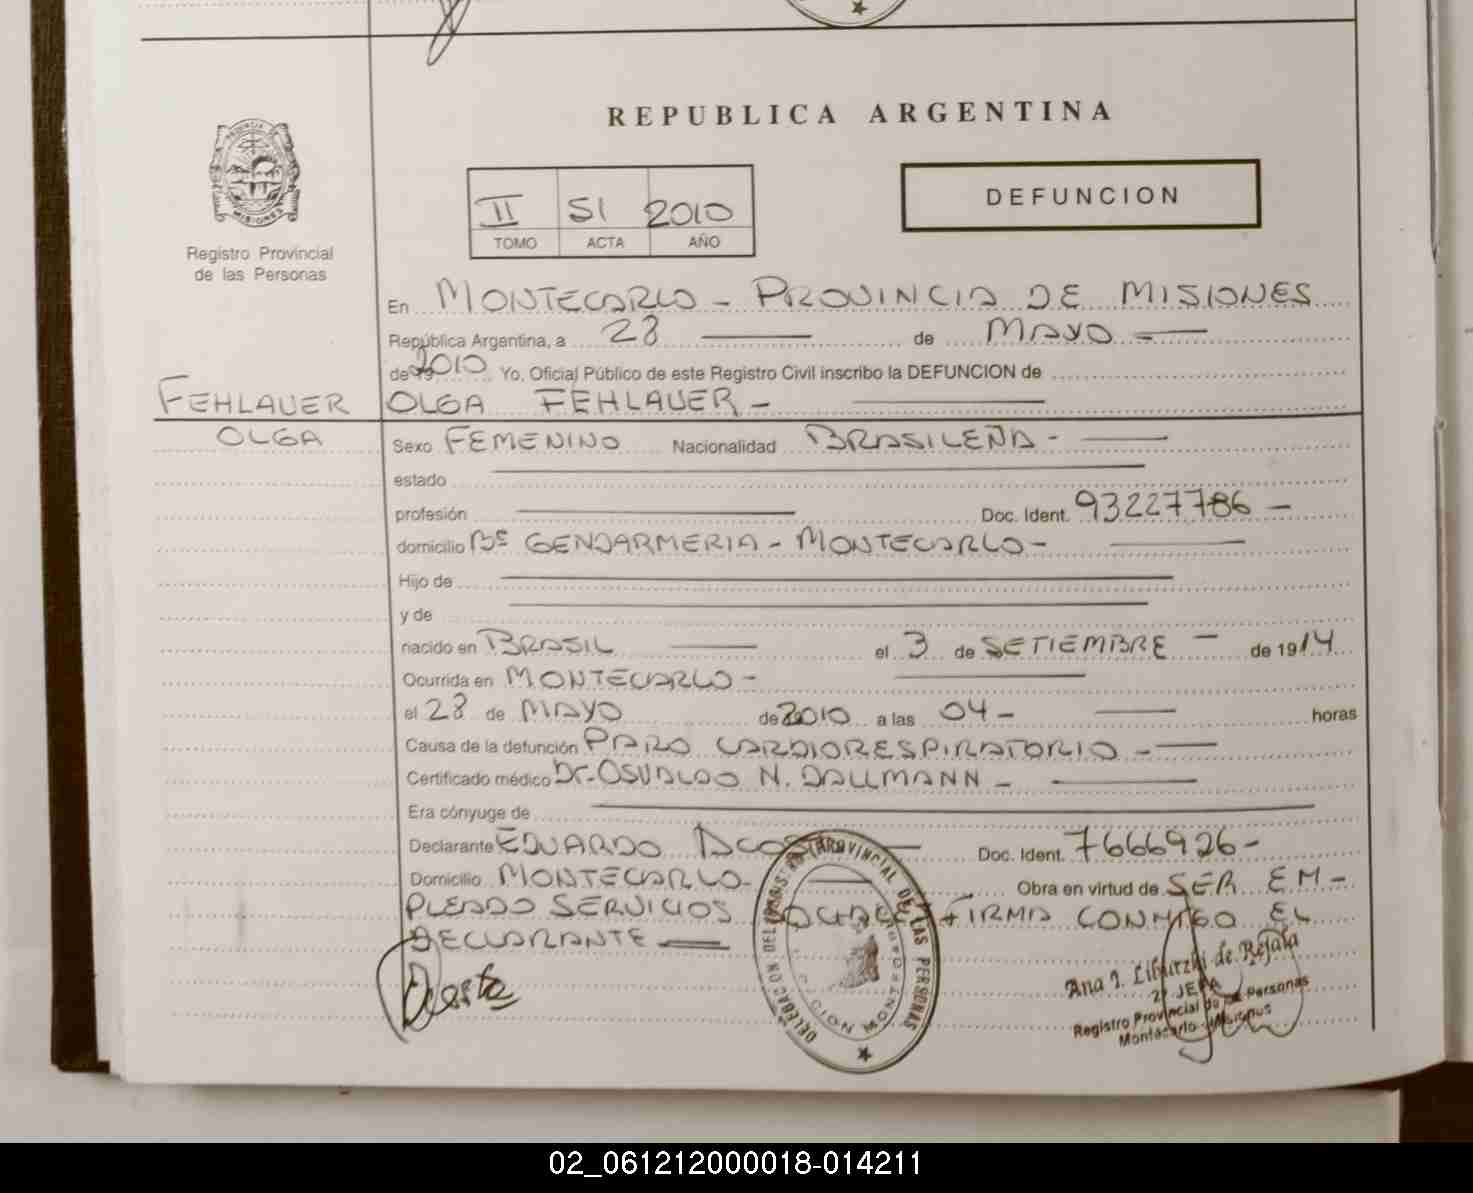 REPUBLICA ARGENTINA
PROVINCIA DE
MISIONES
Registro Provincial
de las Personas
II 51 2010
TOMO ACTA AÑO
DEFUNCION
En MONTECARLO - PROVINCIA DE MISIONES
República Argentina, a 28 de MAYO
de 2010 Yo, Oficial Público de este Registro Civil inscribo la DEFUNCION de
FEHLAUER OLGA FEHLAUER -
OLGA
Sexo FEMENINO Nacionalidad BRASILEÑA -
estado
profesión Doc. Ident. 93227786 -
domicilio Bº GENDARMERIA - MONTECARLO -
Hijo de
y de
nacido en BRASIL el 3 de SETIEMBRE - de 1914
Ocurrida en MONTECARLO -
el 28 de MAYO de 2010 a las 04 - horas
Causa de la defunción PARO CARDIORESPIRATORIO -
Certificado médico Dr. OSVALDO N. DALLMANN -
Era cónyuge de
Declarante EDUARDO ACOSTA Doc. Ident. 7666926 -
Domicilio MONTECARLO - Obra en virtud de SER EM-
PLEADO SERVICIOS FIRMA CONMIGO EL
DECLARANTE
Acosta
PROVINCIAL DE LAS PERSONAS
DELEGACION
Ana I. de Rejala
Registro Provincial de Personas
Montecarlo - Misiones
02_061212000018-014211